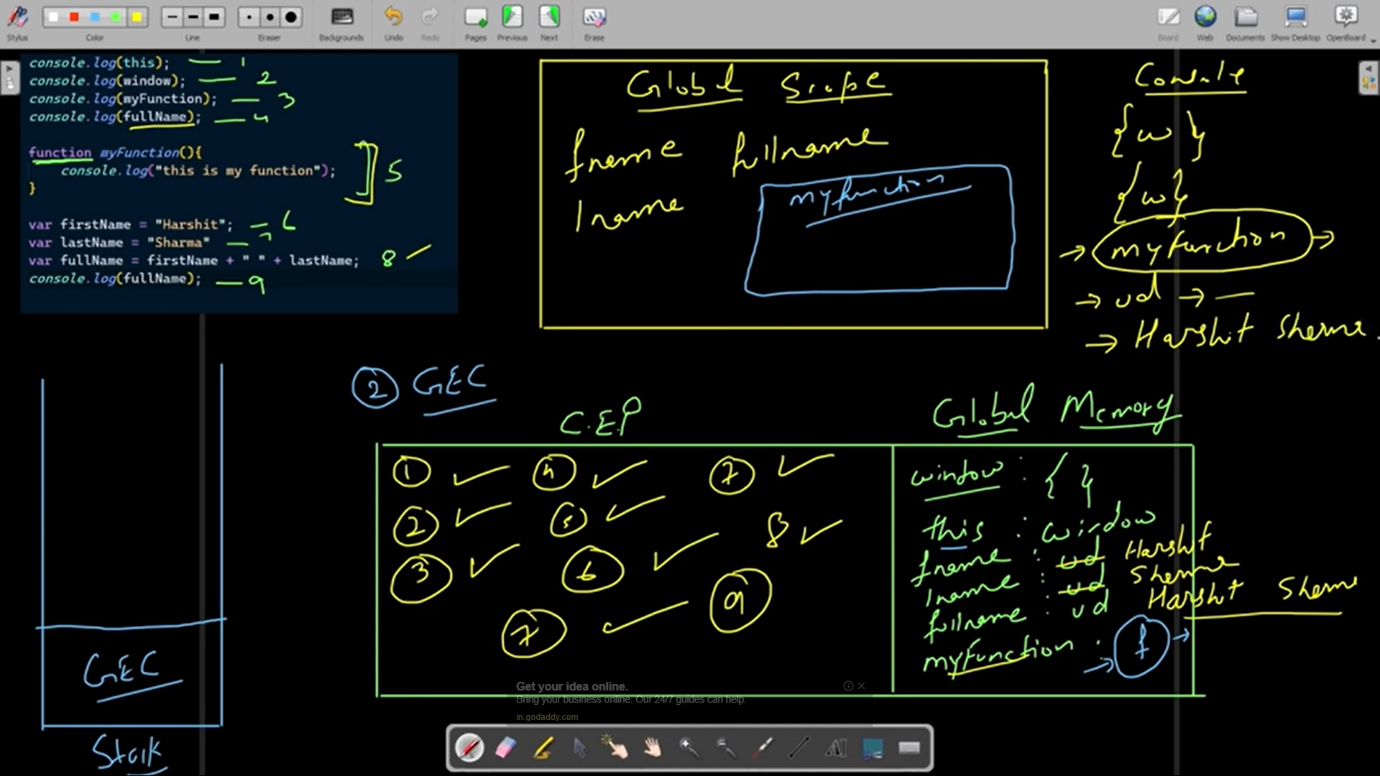 Stylus
Color
Line
Eraser
Backgrounds
Undo
Redo
Pages
Previous
Next
Erase
Board
Web
Documents
Show Desktop
OpenBoard
console.log(this); 1
console.log(window); 2
console.log(myFunction); 3
console.log(fullName); 4
function myFunction(){
console.log("this is my function"); 5
}
var firstName = "Harshit"; 6
var lastName = "Sharma" 7
var fullName = firstName + " " + lastName; 8
console.log(fullName); 9
Global Scope
fname fullname
lname
myfunction
Console
{w}
{w}
→ myfunction →
→ ud → —
→ Harshit Sharma.
② GEC
C.E.P
① ✓ ④ ✓ ⑦ ✓
② ✓ ⑤ ✓ 8 ✓
③ ✓ ⑥ ✓ ⑨
⑦ ✓
Global Memory
window : { }
this : window
fname : ud Harshit
lname : ud Sharma
fullname : ud Harshit Sharma
myFunction : → f →
GEC
Stack
Get your idea online.
Bring your business online. Our 24/7 guides can help.
in.godaddy.com